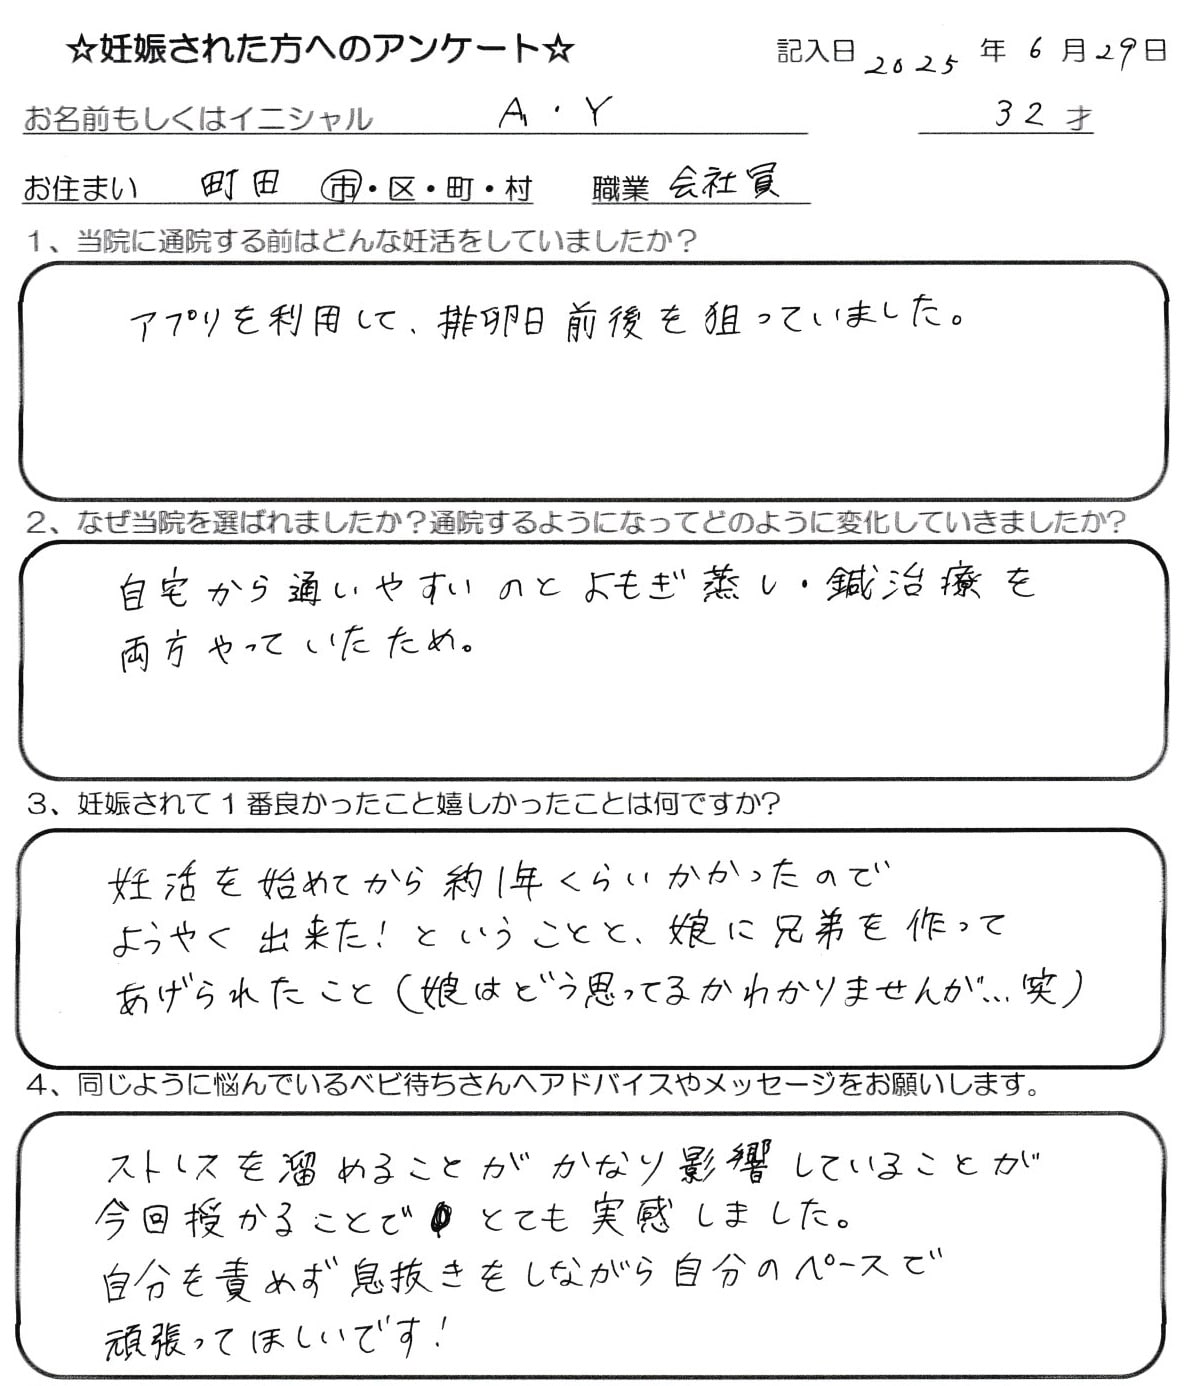 ☆妊娠された方へのアンケート☆ 記入日 2025 年 6 月 29 日
お名前もしくはイニシャル A・Y 32 才
お住まい 町田 市・区・町・村 職業 会社員
1、当院に通院する前はどんな妊活をしていましたか？
アプリを利用して、排卵日前後を狙っていました。
2、なぜ当院を選ばれましたか？通院するようになってどのように変化していきましたか？
自宅から通いやすいのとよもぎ蒸し・鍼治療を
両方やっていたため。
3、妊娠されて１番良かったこと嬉しかったことは何ですか？
妊活を始めてから約1年くらいかかったので
ようやく出来た！ということと、娘に兄弟を作って
あげられたこと（娘はどう思ってるかわかりませんが…笑）
4、同じように悩んでいるベビ待ちさんへアドバイスやメッセージをお願いします。
ストレスを溜めることがかなり影響していることが
今回授かることでとても実感しました。
自分を責めず息抜きをしながら自分のペースで
頑張ってほしいです！